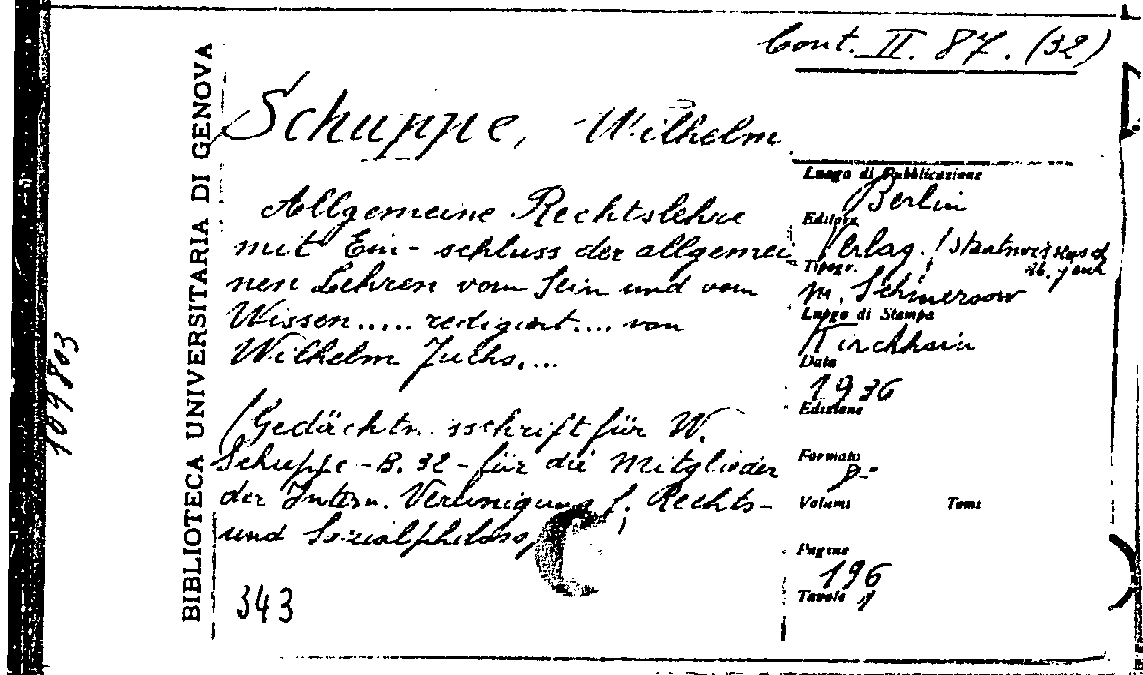 Cont. II. 87. (32)
BIBLIOTECA UNIVERSITARIA DI GENOVA
109803
Schuppe, Wilhelm
Allgemeine Rechtslehre
mit Ein- schluss der allgemei
nen Lehren vom Sein und vom
Wissen..... redigiert.... von
Wilhelm Fuchs....
(Gedächtn sschrift für W.
Schuppe - B. 32 - für die Mitglieder
der Intern. Vereinigung f. Rechts-
und Sozialphilosop
343
Luogo di Pubblicazione
Berlin
Editore
Verlag.
Tipogr.
M. Schmersow
Luogo di Stampa
Kirchhain
Data
1936
Edizione
Formato
8°
Volumi Tomi
Pagine
196
Tavole